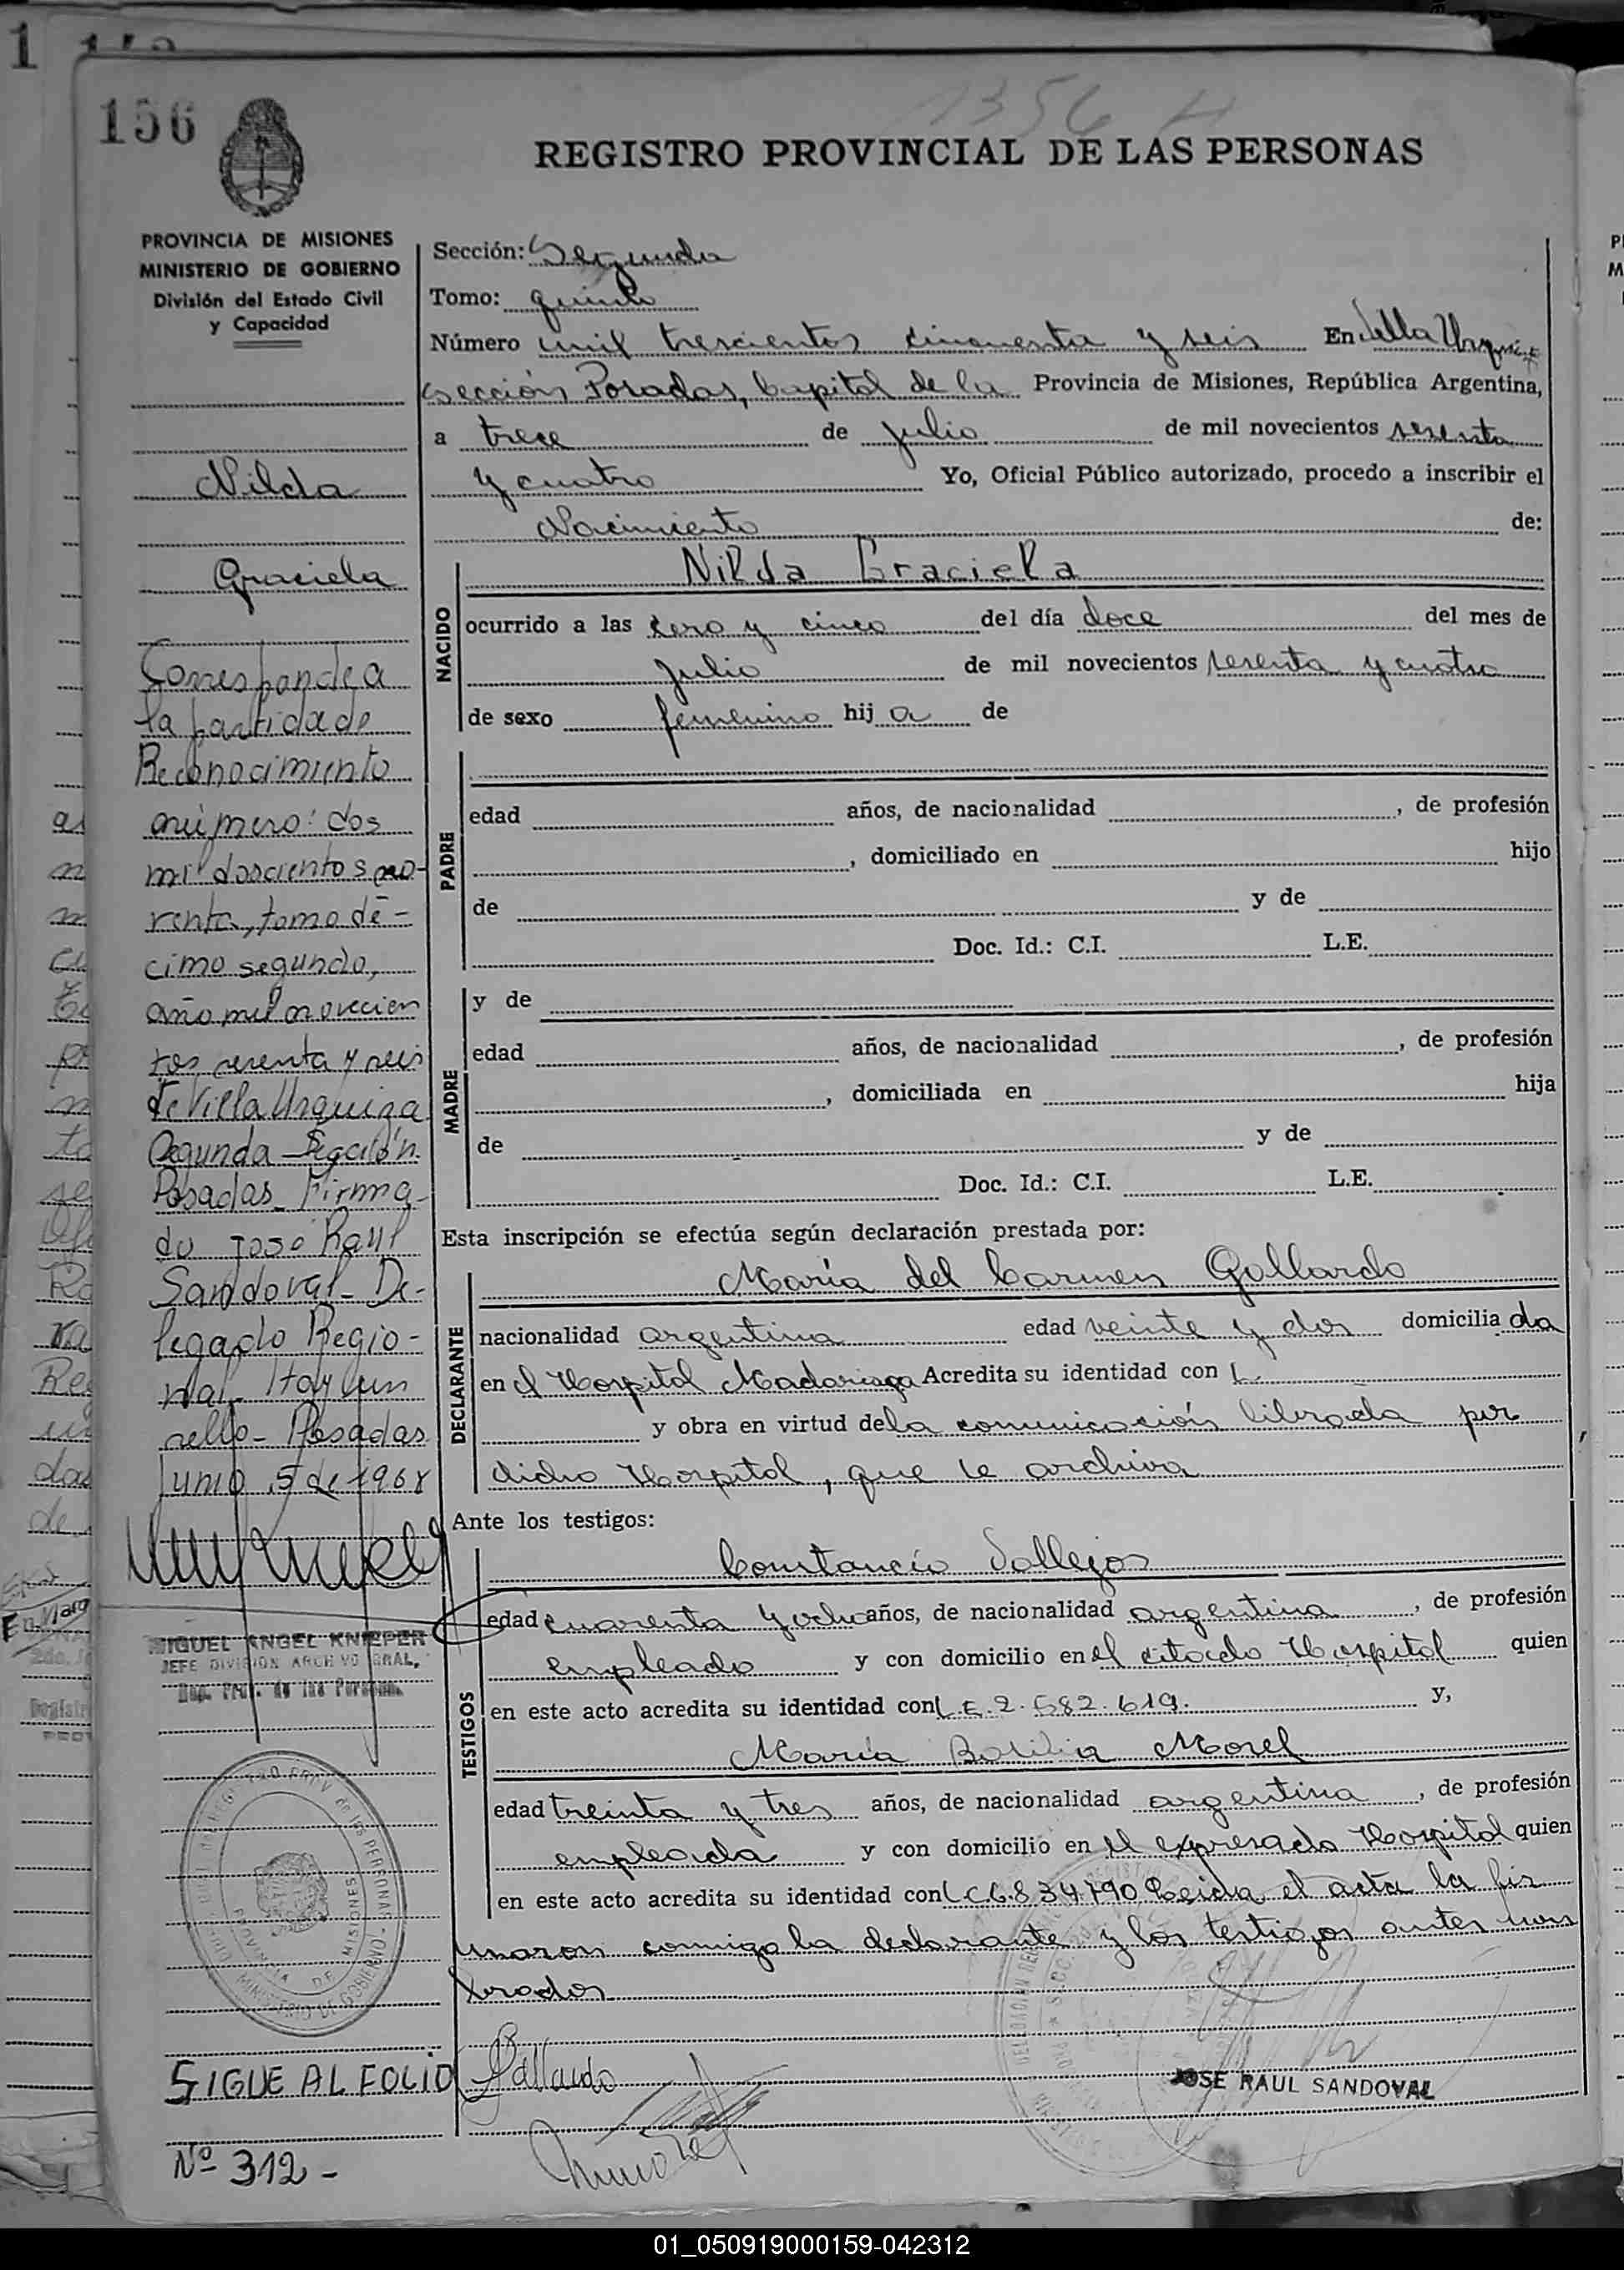 1
156
1356
REGISTRO PROVINCIAL DE LAS PERSONAS
PROVINCIA DE MISIONES
MINISTERIO DE GOBIERNO
División del Estado Civil
y Capacidad
Nilda
Graciela
Corresponde a
la partida de
Reconocimiento
número: dos
mil doscientos no-
venta, tomo dé-
cimo segundo,
año mil novecien
tos sesenta y seis
de Villa Urquiza
Segunda Sección
Posadas. Firma-
do José Raul
Sandoval - De-
legado Regio-
nal. Hay un
sello - Posadas
Junio 5 de 1968
MIGUEL ANGEL KNIEPER
JEFE DIVISION ARCHIVO GRAL.
Reg. Prov. de las Personas
PROVINCIA DE MISIONES
MINISTERIO DE GOBIERNO
SIGUE AL FOLIO
Nº 312 -
Sección: Segunda
Tomo: quinto
Número mil trescientos cincuenta y seis En Villa Urquiza
sección Posadas, Capital de la Provincia de Misiones, República Argentina,
a trece de julio de mil novecientos sesenta
y cuatro Yo, Oficial Público autorizado, procedo a inscribir el
Nacimiento de:
NACIDO
Nilda Graciela
ocurrido a las cero y cinco del día doce del mes de
julio de mil novecientos sesenta y cuatro
de sexo femenino hij a de
PADRE
edad años, de nacionalidad , de profesión
, domiciliado en hijo
de y de
Doc. Id.: C.I. L.E.
MADRE
y de
edad años, de nacionalidad , de profesión
, domiciliada en hija
de y de
Doc. Id.: C.I. L.E.
Esta inscripción se efectúa según declaración prestada por:
DECLARANTE
María del Carmen Gallardo
nacionalidad argentina edad veinte y dos domicilia da
en el Hospital Madariaga Acredita su identidad con
y obra en virtud de la comunicación librada por
dicho Hospital, que se archiva
Ante los testigos:
TESTIGOS
Constancio Vallejos
edad cuarenta y ocho años, de nacionalidad argentina , de profesión
empleado y con domicilio en el citado Hospital quien
en este acto acredita su identidad con L.E. 2.582.619. y,
María Morel
edad treinta y tres años, de nacionalidad argentina , de profesión
empleada y con domicilio en el expresado Hospital quien
en este acto acredita su identidad con L.C 6.834.790 Leida el acta la fir
maron conmigo la declarante y los testigos antes nom
brados
Gallardo
JOSE RAUL SANDOVAL
01_050919000159-042312